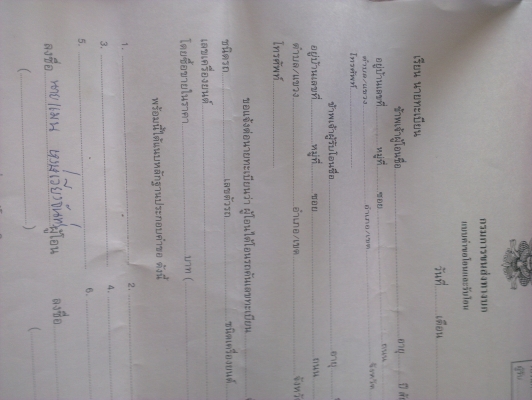 กรมการขนส่งทางบก
แบบคำขอโอนและรับโอน
วันที่ เดือน
เรียน นายทะเบียน
ข้าพเจ้าผู้โอนชื่อ อายุ ปี
อยู่บ้านเลขที่ หมู่ที่ ซอย ถนน
ตำบล/แขวง อำเภอ/เขต จังหวัด
โทรศัพท์
ข้าพเจ้าผู้รับโอนชื่อ อายุ
อยู่บ้านเลขที่ หมู่ที่ ซอย ถนน
ตำบล/แขวง อำเภอ/เขต จังหวัด
โทรศัพท์
ขอแจ้งต่อนายทะเบียนว่า ผู้โอนได้โอนรถคันเลขทะเบียน
ชนิดรถ เลขตัวรถ ชนิดเครื่องยนต์
เลขเครื่องยนต์
โดยซื้อขายในราคา บาท (
พร้อมนี้ได้แนบหลักฐานประกอบคำขอ ดังนี้
1. 2.
3. 4.
5. 6.
ลงชื่อ ผู้โอน ลงชื่อ
( ) (